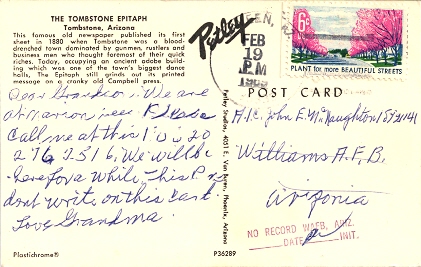 THE TOMBSTONE EPITAPH
Tombstone, Arizona
This famous old newspaper published its first
sheet in 1880 when Tombstone was a blood-
drenched town dominated by gunmen, rustlers and
business men who thought foremost of their quick
riches. Today, occupying an ancient adobe build-
ing which was one of the town's biggest dance
halls, The Epitaph still grinds out its printed
message on a cranky old Campbell press.
Dear Grandson. We are
at Marion
Call me at this
276 2516. We will be
here for a while. This P.
dont write on this card.
Love Grandma
Plastichrome®
Petley
Petley Studios, 4051 E. Van Buren, Phoenix, Arizona
FEB
19
P.M
6¢
PLANT for more BEAUTIFUL STREETS
POST CARD
A.1.C. John E. McNaughton
Williams A.F.B.
Arizonia
NO RECORD WAFB, ARIZ.
DATE INIT.
P36289